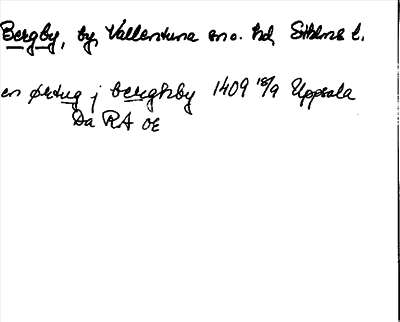 Bergby, by, Vallentuna sn o. hd, Sthlms l.
en ørtug j berghby 1409 18/9 Uppsala
Da RA OE